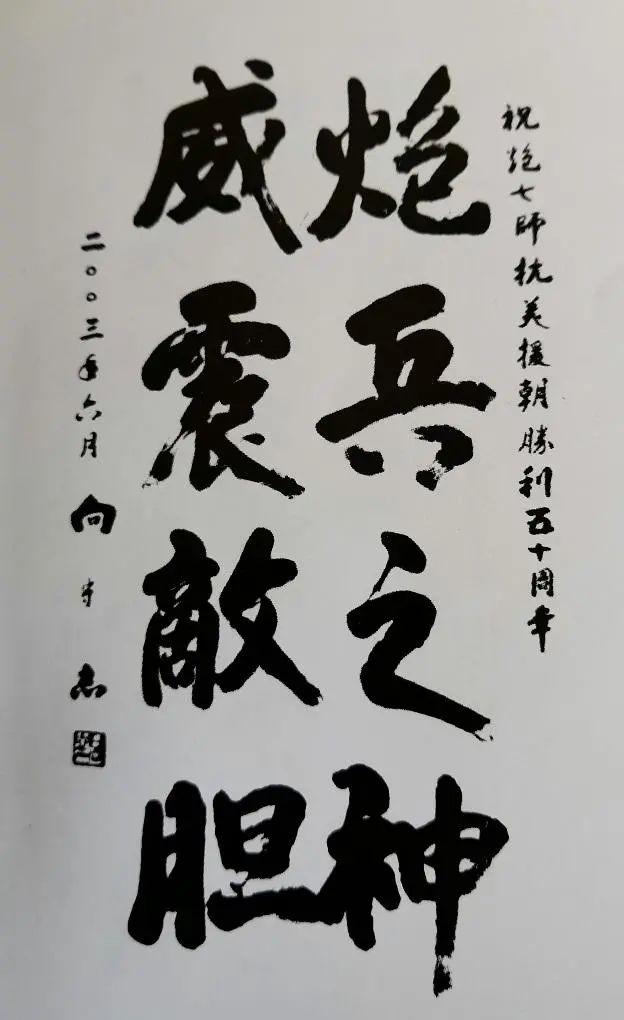 祝炮七師抗美援朝勝利五十周年
炮兵之神
威震敵胆
二〇〇三年六月 向守志